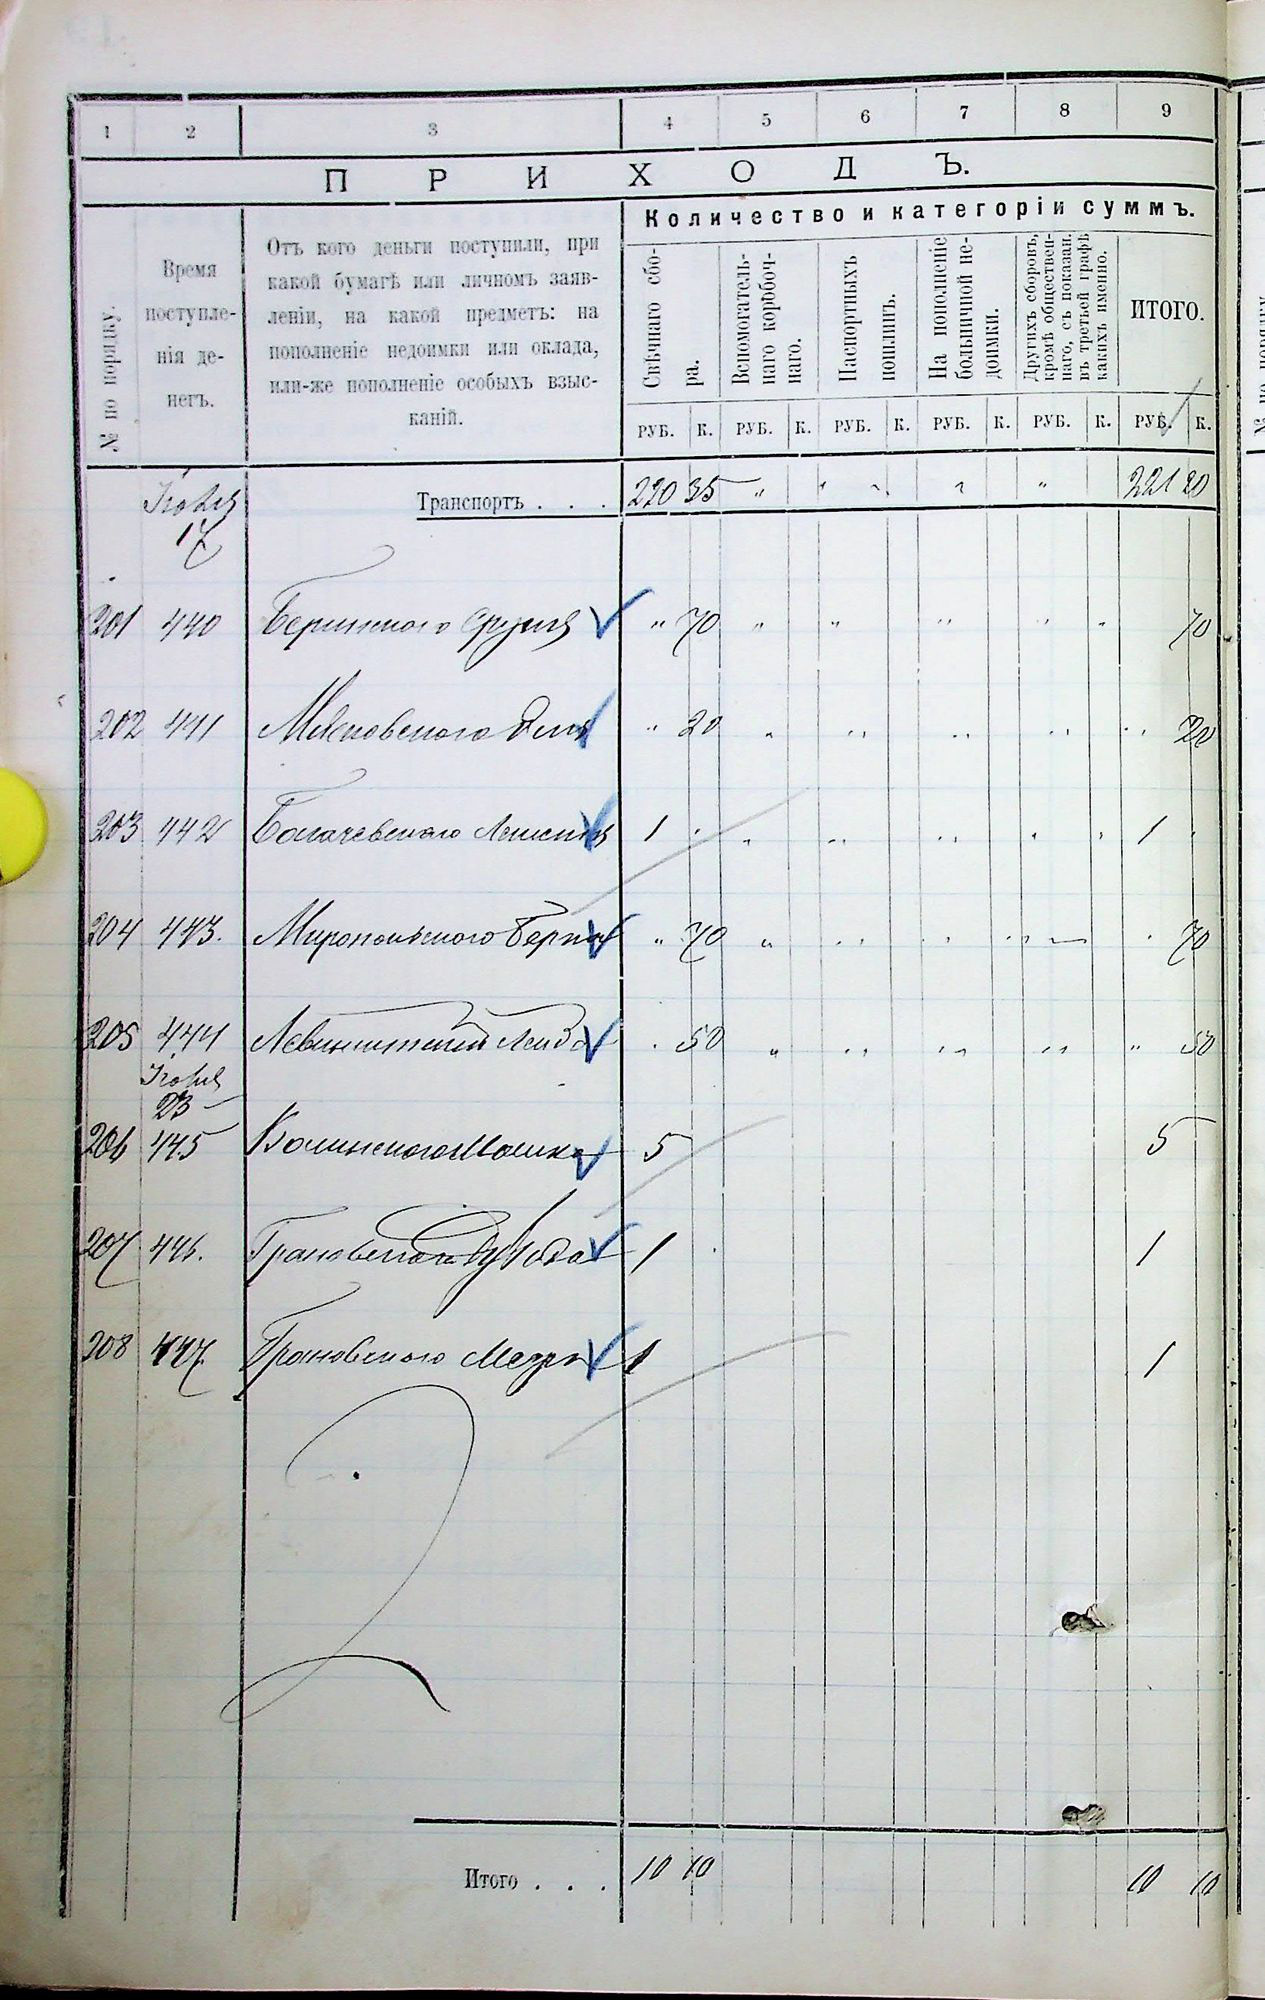 1 2 3 4 5 6 7 8 9
ПРИХОДЪ.
№ по порядку.
Время
поступле-
нія де-
негъ.
Отъ кого деньги поступили, при
какой бумагѣ или личномъ заяв-
леніи, на какой предметъ: на
пополненіе недоимки или оклада,
или-же пополненіе особыхъ взыс-
каній.
Количество и категоріи суммъ.
Свѣчнаго сбо-
ра.
Вспомогатель-
наго коробоч-
наго.
Паспортныхъ
пошлинъ.
На пополненіе
больничной не-
доимки.
Другихъ сборовъ,
кромѣ обществен-
наго, съ показан.
въ третьей графѣ
какихъ именно.
ИТОГО.
РУБ. К. РУБ. К. РУБ. К. РУБ. К. РУБ. К. РУБ. К.
Транспортъ . . . 220 35 " " " " " 221 20
Іюля
17
201 440 " 70 " " " " " 70
202 441 " 20 " " " " " 20
203 442 Богачевскаго 1 " " " " " 1
204 443. Миропольскаго Берка " 70 " " " " " 70
205 444 Лейба " 50 " " " " " 50
Іюля
23
206 445 Волинскаго Мошка 5 5
207 446. Грановскаго 1 1
208 447 Грановскаго 1 1
Итого . . . 10 10 10 10